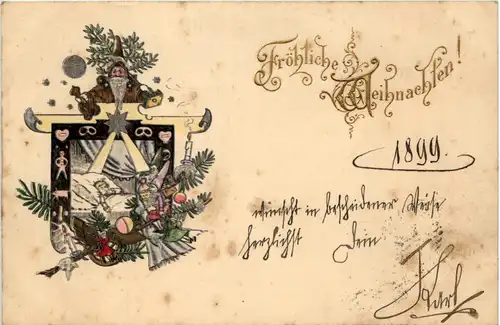 Fröhliche
Weihnachten!
1899.
wünscht in bescheidener Weise
herzlichst Dein
Karl